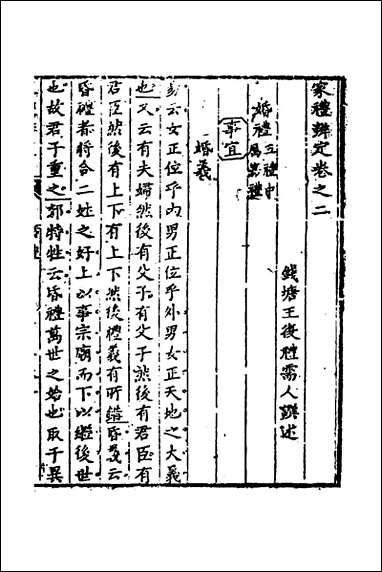 家禮辨定卷之二
錢塘王復禮需人輯述
婚禮 五禮中屬嘉禮
事宜
婚義
易云女正位乎内男正位乎外男女正天地之大義
也又云有夫婦然後有父子有父子然後有君臣有
君臣然後有上下有上下然後禮義有所錯昏義云
昏禮者將合二姓之好上以事宗廟而下以繼後世
也故君子重之郊特牲云昏禮萬世之始也取于異